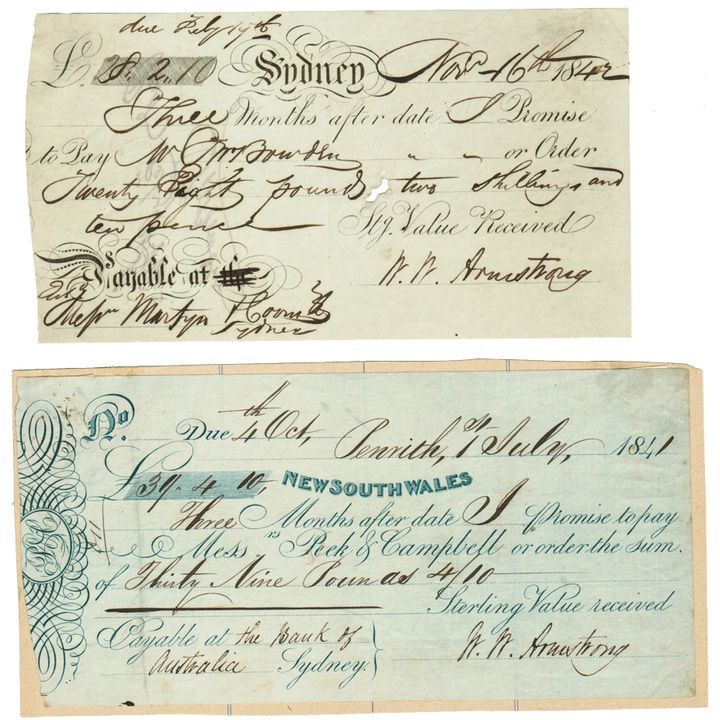 due Feby 19th
£ 28. 2. 10 Sydney Nov 16th 1842
Three Months after date I Promise
to Pay Mr Bowden " " or Order
Twenty Eight pounds two shillings and
ten pence Stg. Value Received
Payable at the W. W. Armstrong
Messrs Martyn & Coomb
Sydney
No. Due 4th Oct, Penrith, 1st July, 1841
£39-4 10, NEW SOUTH WALES
Three Months after date I promise to pay
Messrs Peek & Campbell or order the sum.
of Thirty Nine Pounds 4/10
Sterling Value received
Payable at the Bank of
Australia Sydney. W. W. Armstrong